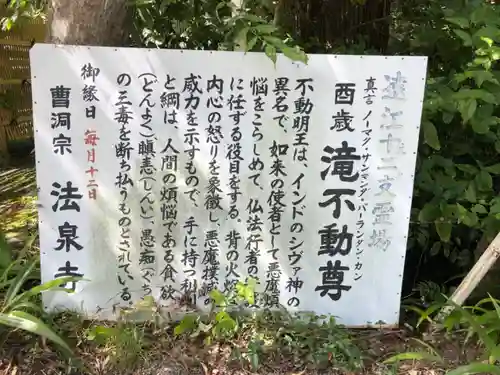 遠江十二支霊場
真言 ノーマク・サンマンダ・バーランダン・カン
酉歳 滝不動尊
不動明王は、インドのシヴァ神の
異名で、如来の使者として悪魔煩
悩をこらしめて、仏法行者の
に任ずる役目をする。背の火焔
内心の怒りを象徴し、悪魔撲滅の
威力を示すもので、手に持つ利
と綱は、人間の煩悩である貪欲
(とんよこ)瞋恚(しんい)愚痴(ぐち
の三毒を断ち払うものとされている。
御縁日 毎月十二日
曹洞宗 法泉寺